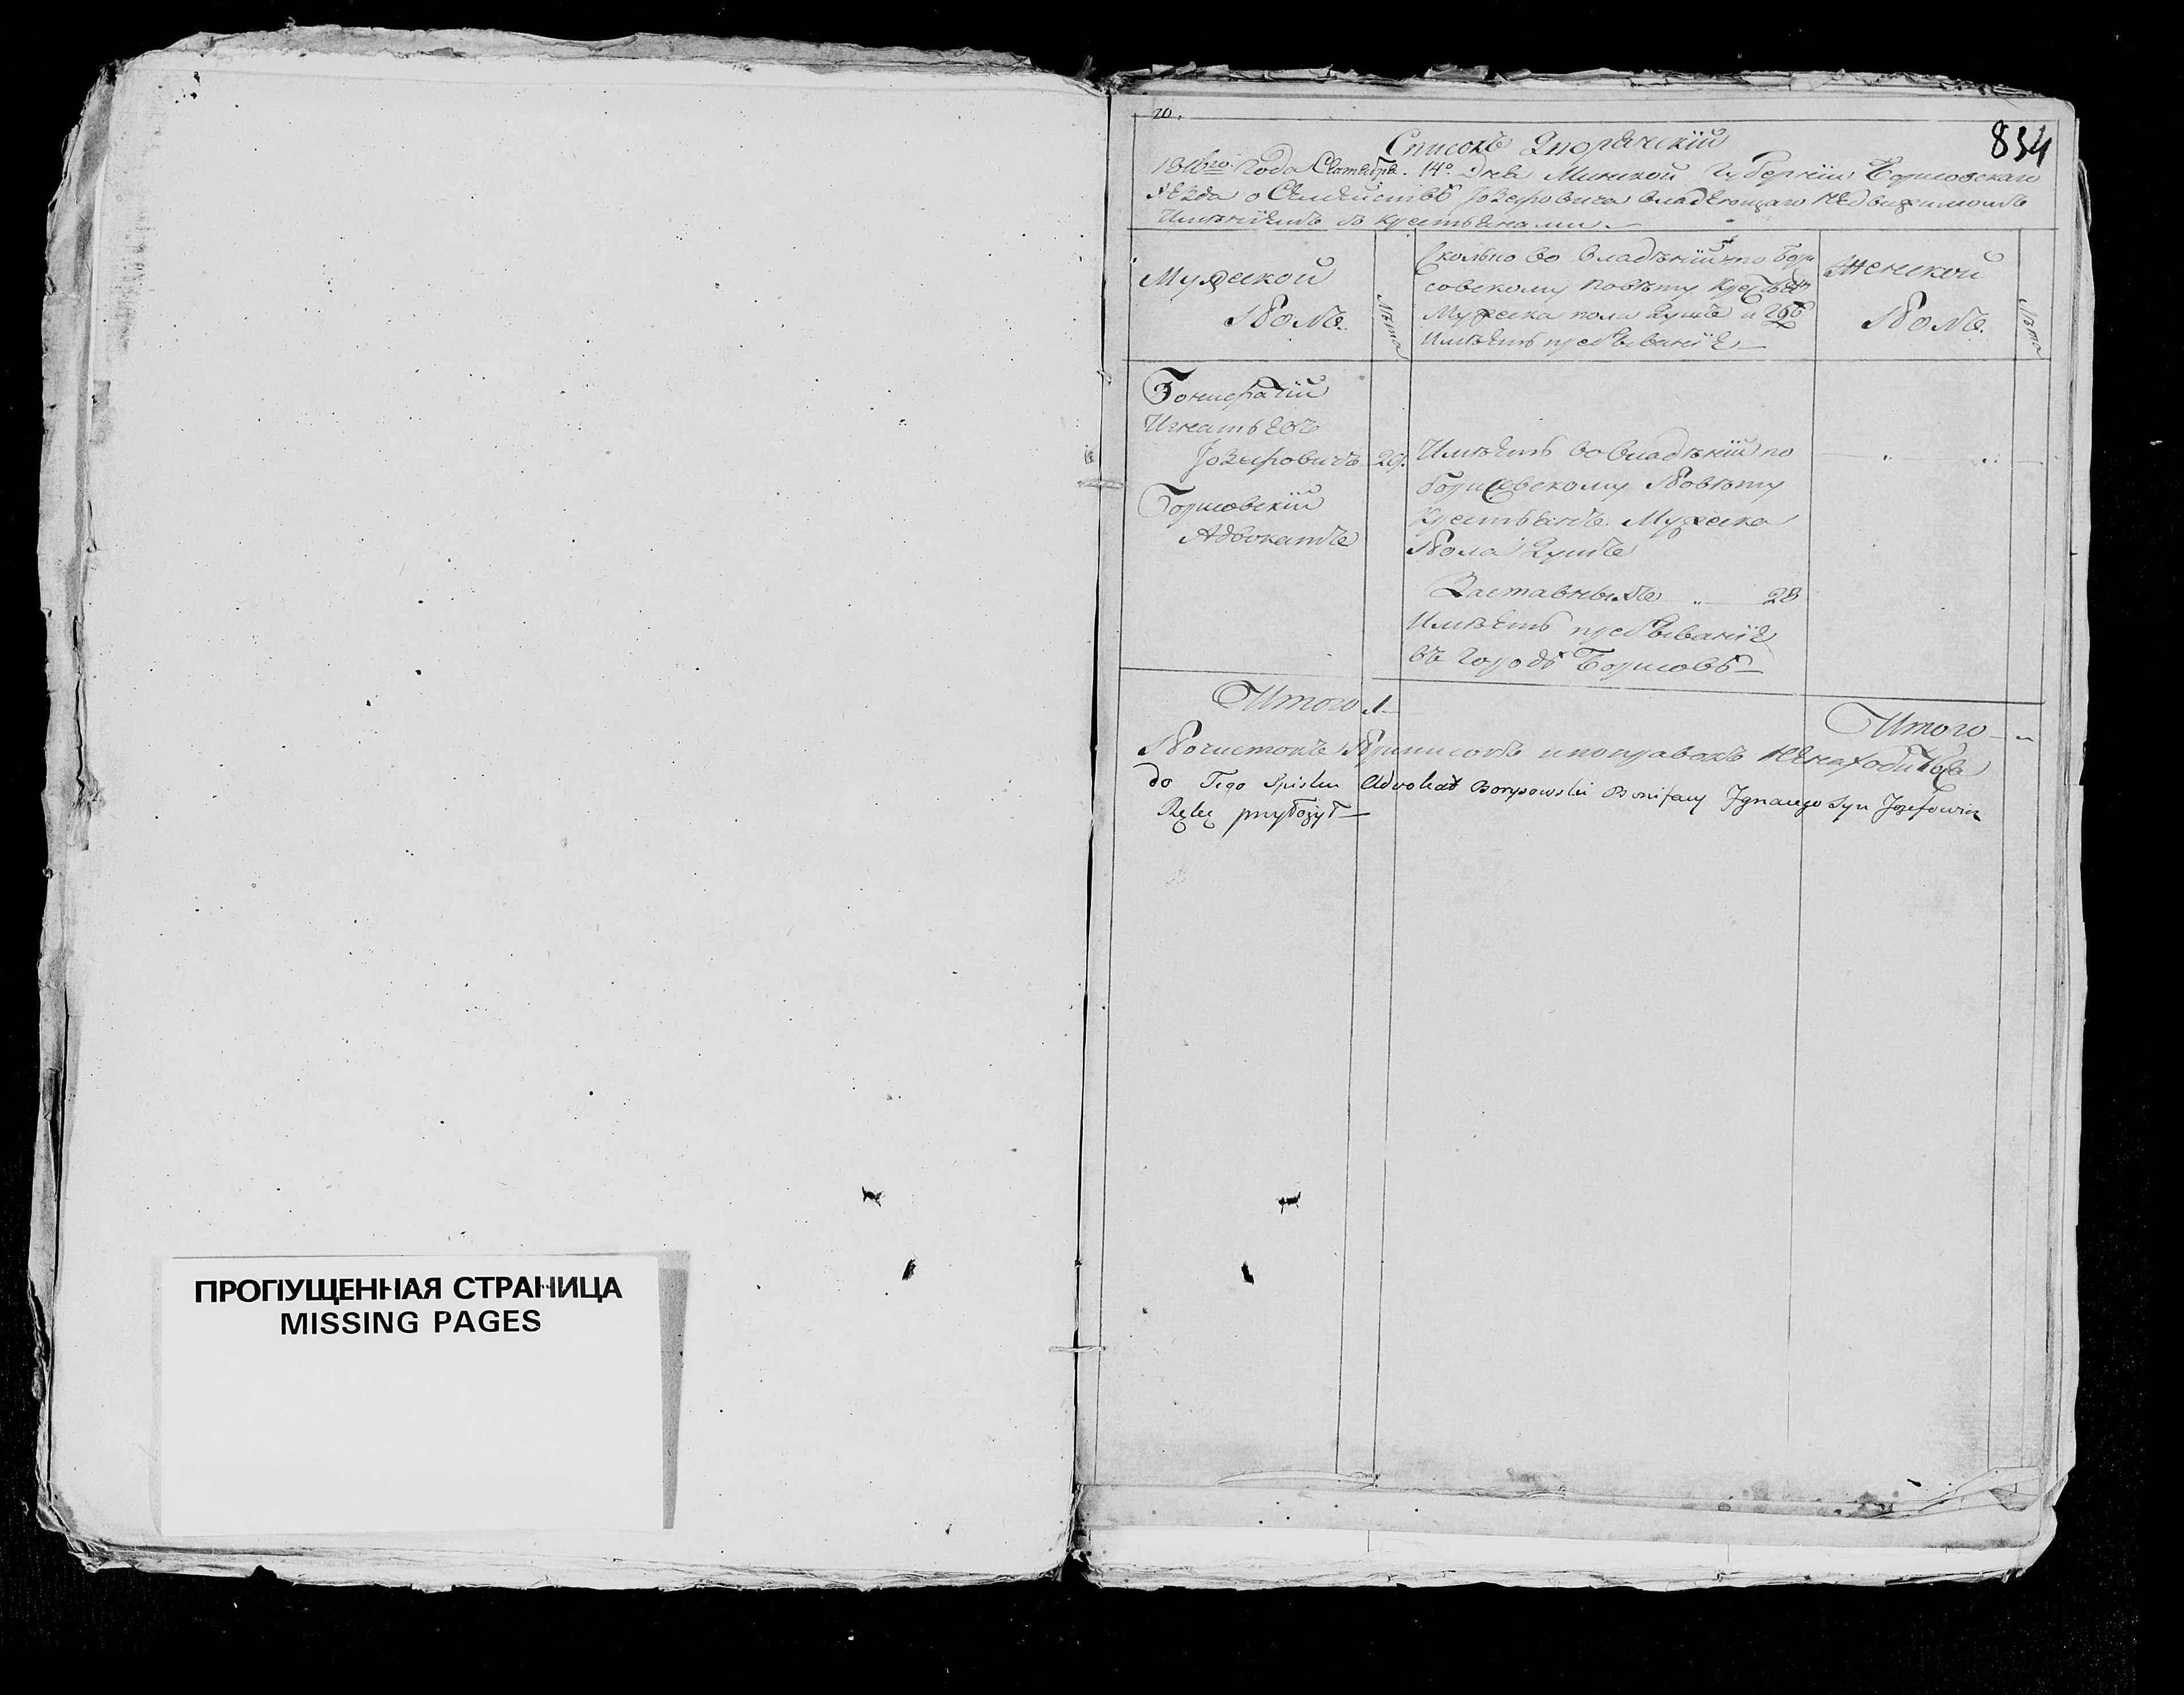 ПРОПУЩЕННАЯ СТРАНИЦА
MISSING PAGES
20.
834
Списокъ Дворянскій
1816го Года Сентября 14о Дня Минской Губерніи Борисовскаго
уезда о Семействѣ Іозефовича владеющаго недвижимомъ
Имѣніемъ съ крестьянами
Мужеской
Полъ.
Лѣта
Сколько во владѣніи по Бори
совскому Повѣту Крестьянъ
Мужеска пола душъ и гдѣ
Имѣетъ пребываніе
Женской
Полъ.
Лѣта
Бонифатій
Игнатьевъ
Іозефовичъ 29.
Борисовскій
Адвокатъ
Имѣетъ во владѣніи по
Борисовскому Повѣту
Крестьянъ Мужеска
Пола Душъ
Заставныхъ 28
Имѣетъ пребываніе
въ Городѣ Борисовѣ
Итого 1
Итого
Почистокъ Приписокъ и поправокъ не находится
do Tego Spisku Adwokat Borysowski Bonifacy Ignacego Syn Jozefowicz
Rękę przyłożył